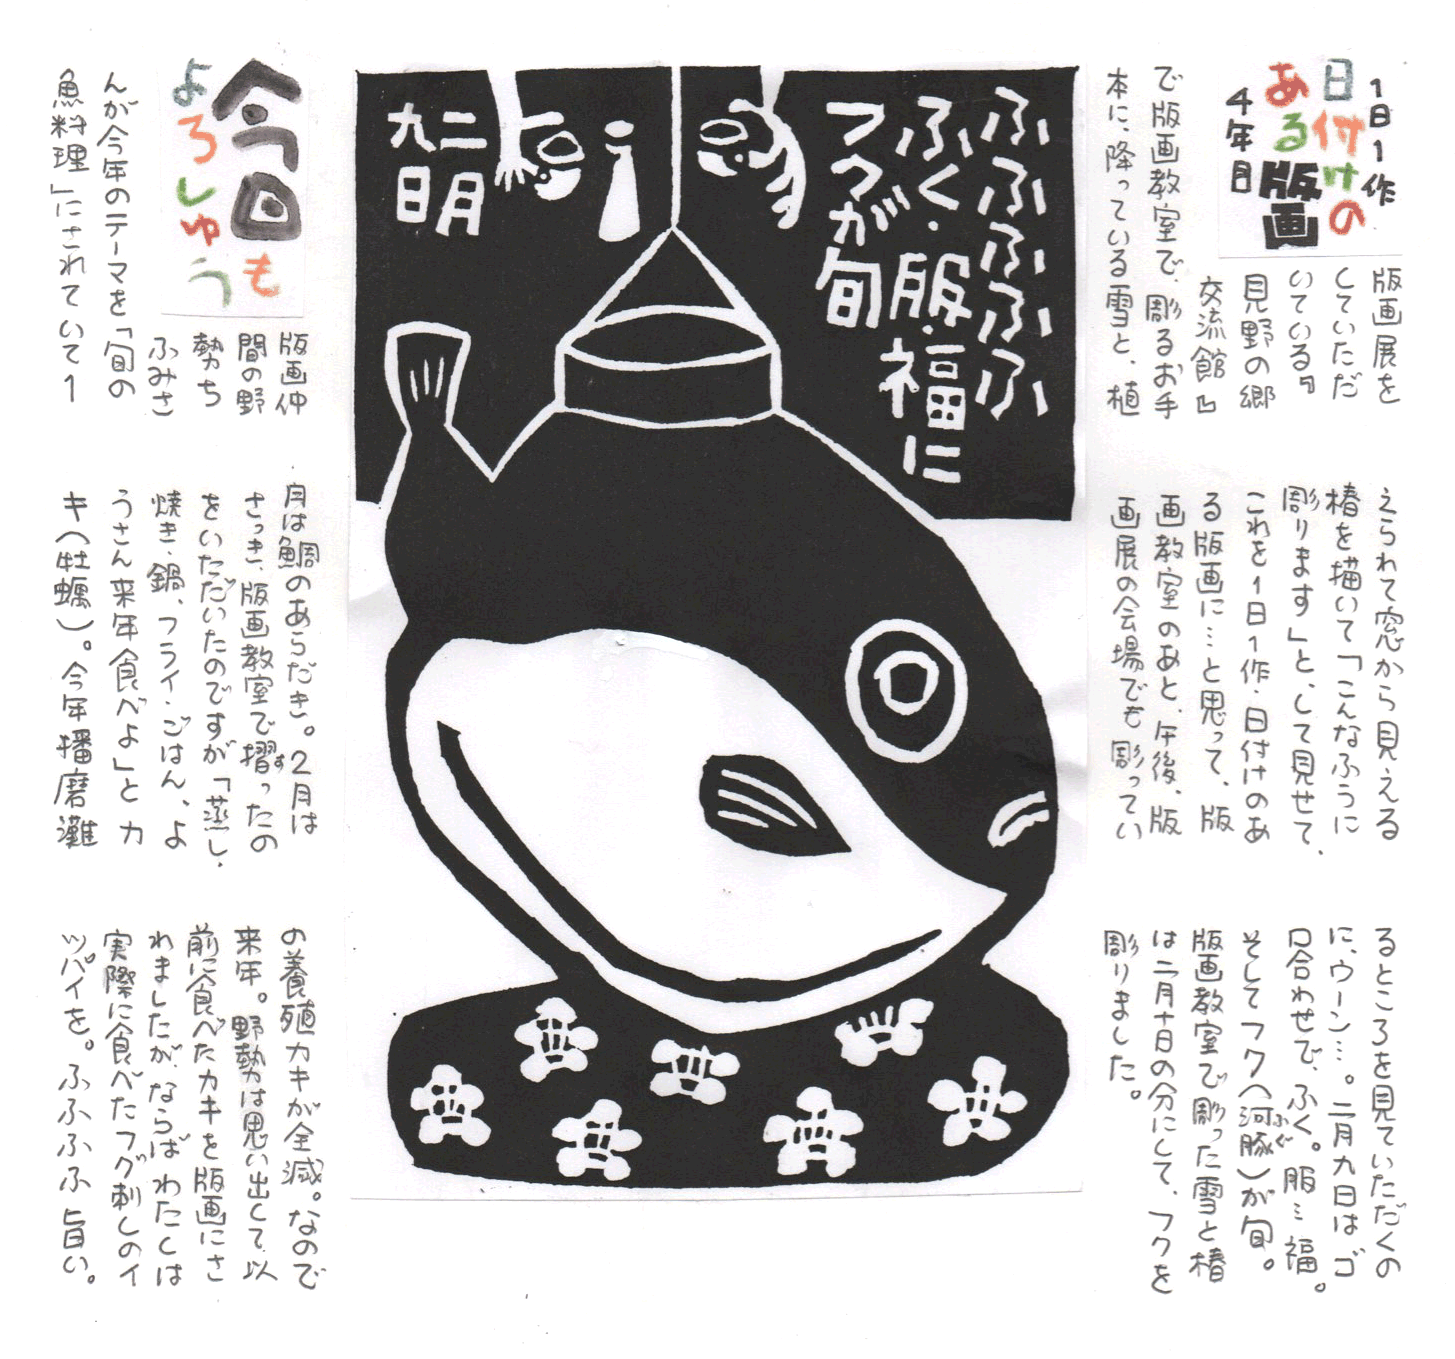 1日1作
日付けの
ある版画
4年目
版画展を
していただ
いている『
見野の郷
交流館』
で版画教室で、彫るお手
本に、降っている雪と、植
えられて窓から見える
椿を描いて「こんなふうに
彫ります」と、して見せて、
これを1日1作・日付けのあ
る版画に…と思って、版
画教室のあと、午後、版
画展の会場でも彫ってい
るところを見ていただくの
に、ウーン…。二月九日はゴ
ロ合わせで、ふく。服…福。
そしてフク(河豚)が旬。
ふぐ
版画教室で彫った雪と椿
は二月十日の分にして、フクを
彫りました。
ふふふふふふ
ふく・服・福に
フクが旬
二月
九日
今日も
よろしゅう
版画仲
間の野
勢ち
ふみさ
んが今年のテーマを「旬の
魚料理」にされていて1
月は鯛のあらだき。2月は
さっき、版画教室で摺ったの
す
をいただいたのですが「蒸し・
焼き・鍋、フライ・ごはん、よ
うさん来年食べよ」とカ
キ(牡蠣)。今年播磨灘
の養殖カキが全滅。なので
来年。野勢は思い出して以
前に食べたカキを版画にさ
れましたが、ならばわたしは
実際に食べたフグ刺しのイ
ッパイを。ふふふふ旨い。